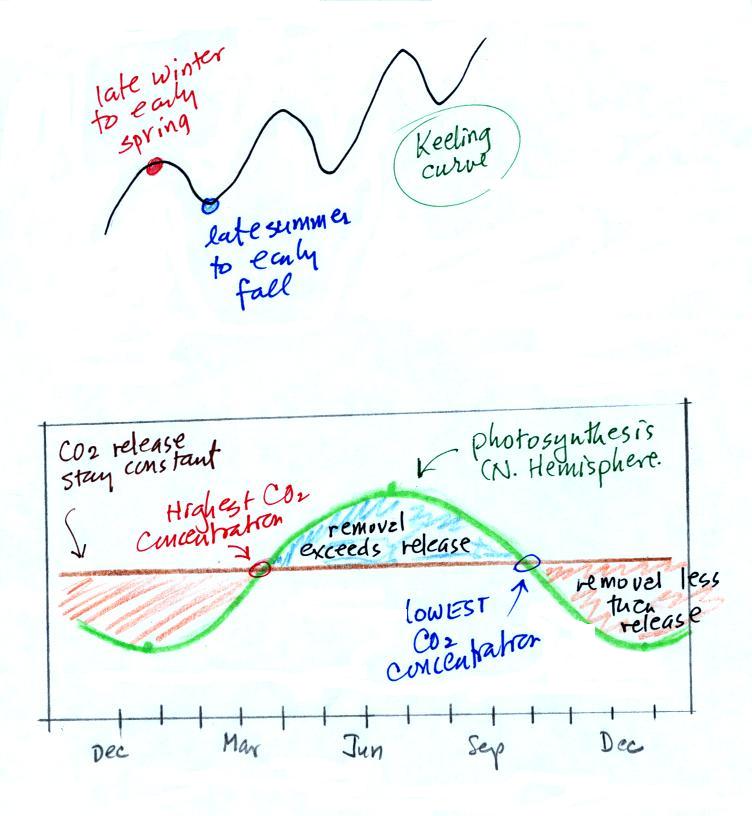 late winter
to early
spring
Keeling
curve
late summer
to early
fall
CO2 release
stay constant
photosynthesis
(N. Hemisphere.
Highest CO2
concentration
removal
exceeds release
removal less
than
release
LOWEST
CO2
concentration
Dec Mar Jun Sep Dec